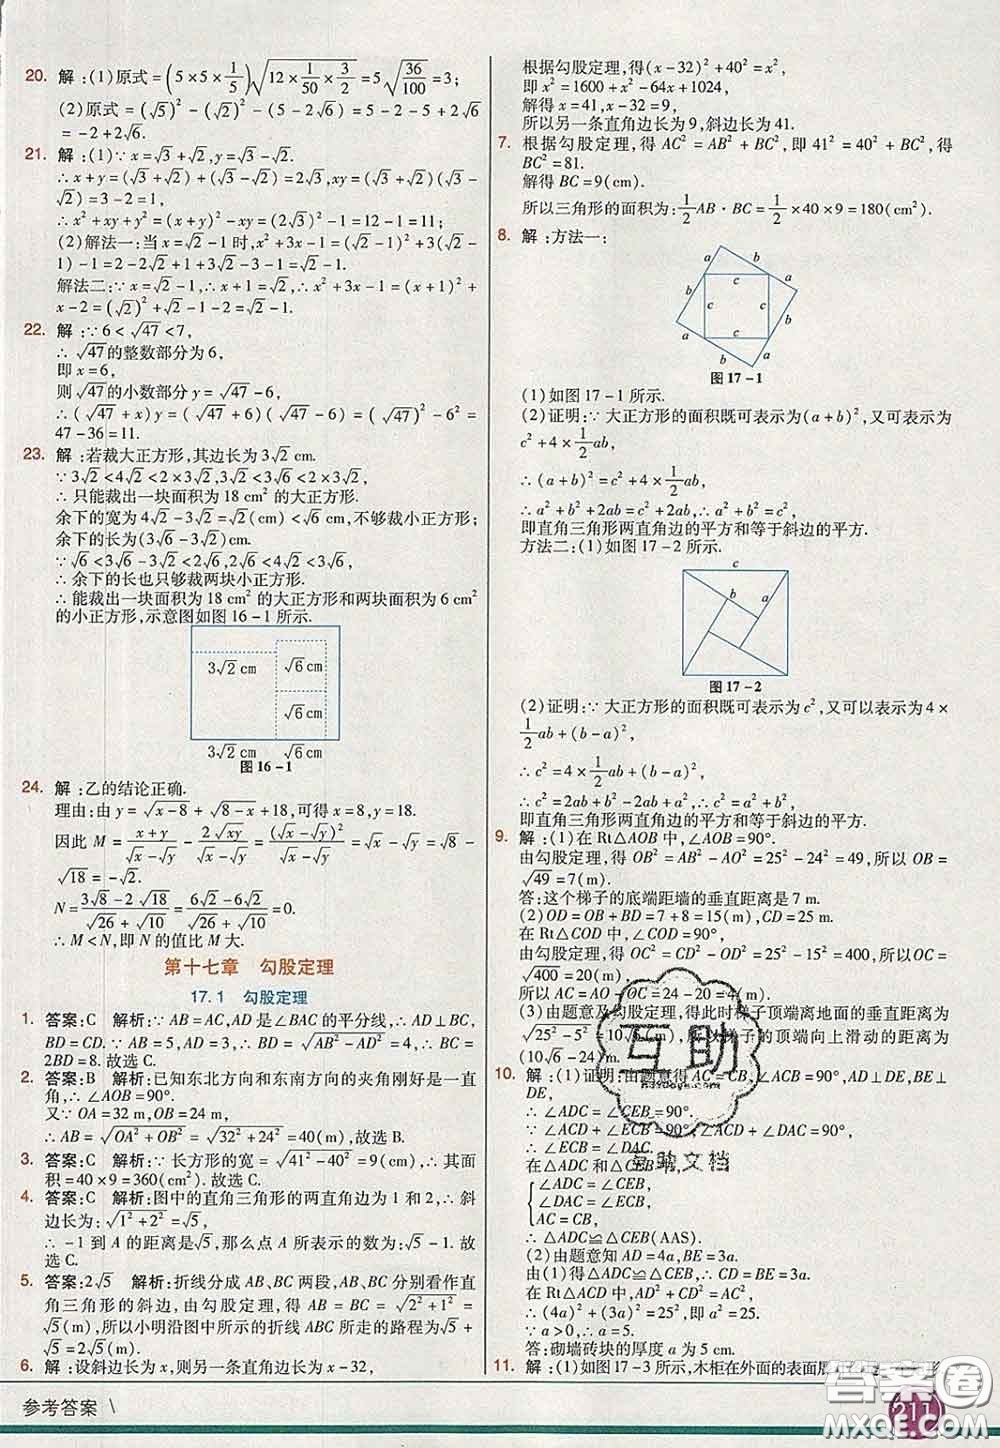 20. 解:(1)原式=(5×5×1/5)√(12×1/50×3/2)=5√(36/100)=3;
(2)原式=(√5)²-(√2)²-(5-2√6)=5-2-5+2√6
=-2+2√6.
21. 解:(1)∵x=√3+√2,y=√3-√2.
∴x+y=(√3+√2)+(√3-√2)=2√3,xy=(√3+√2)(√3-√2)=3-2=1,
∴x²+xy+y²=(x+y)²-xy=(2√3)²-1=12-1=11;
(2)解法一:当x=√2-1时,x²+3x-1=(√2-1)²+3(√2-1)-1=2-2√2+1+3√2-3-1=√2-1.
解法二:∵x=√2-1,∴x+1=√2,∴x²+3x-1=(x+1)²+
x-2=(√2)²+√2-1-2=√2-1.
22. 解:∵6<√47<7,
∴√47的整数部分为6,
即x=6,
则√47的小数部分y=√47-6,
∴(√47+x)y=(√47+6)(√47-6)=(√47)²-6²=
47-36=11.
23. 解:若裁大正方形,其边长为3√2 cm.
∵3√2<4√2<2×3√2,3√2<3√6<2×3√2,
∴只能裁出一块面积为18 cm²的大正方形.
余下的宽为4√2-3√2=√2(cm)<√6 cm,不够裁小正方形;
余下的长为(3√6-3√2)cm.
∵√6<3√6-3√2<2√6,√6<4√2<3√6,
∴余下的长也只够裁两块小正方形.
∴能裁出一块面积为18 cm²的大正方形和两块面积为6 cm²
的小正方形,示意图如图16-1所示.
3√2 cm √6 cm
√6 cm
3√2 cm √6 cm
图16-1
24. 解:乙的结论正确.
理由:由y=√(x-8)+√(8-x)+18,可得x=8,y=18.
因此M=(x+y)/(√x-√y)-2√xy/(√x-√y)=(√x-√y)²/(√x-√y)=√x-√y=√8-
√18=-√2.
N=(3√8-2√18)/(√26+√10)=(6√2-6√2)/(√26+√10)=0.
∴M<N,即N的值比M大.
第十七章 勾股定理
17.1 勾股定理
1. 答案:C 解析:∵AB=AC,AD是∠BAC的平分线,∴AD⊥BC,
BD=CD.∵AB=5,AD=3,∴BD=√(AB²-AD²)=4,∴BC=
2BD=8.故选C.
2. 答案:B 解析:已知东北方向和东南方向的夹角刚好是一直
角,∴∠AOB=90°.
又∵OA=32 m,OB=24 m,
∴AB=√(OA²+OB²)=√(32²+24²)=40(m),故选B.
3. 答案:C 解析:∵长方形的宽=√(41²-40²)=9(cm),∴其面
积=40×9=360(cm²).故选C.
4. 答案:C 解析:图中的直角三角形的两直角边为1和2,∴斜
边长为:√(1²+2²)=√5,
∴-1到A的距离是√5,那么点A所表示的数为:√5-1.故
选C.
5. 答案:2√5 解析:折线分成AB、BC两段,AB、BC分别看作直
角三角形的斜边,由勾股定理,得AB=BC=√(2²+1²)=
√5(m),所以小明沿图中所示的折线ABC所走的路程为√5+
√5=2√5(m).
6. 解:设斜边长为x,则另一条直角边长为x-32,
根据勾股定理,得(x-32)²+40²=x²,
即x²=1600+x²-64x+1024,
解得x=41,x-32=9,
所以另一条直角边长为9,斜边长为41.
7. 根据勾股定理,得AC²=AB²+BC²,即41²=40²+BC²,得
BC²=81.
解得BC=9(cm).
所以三角形的面积为:1/2 AB·BC=1/2×40×9=180(cm²).
8. 解:方法一:
a b
c a
b c c b
a c
b a
图17-1
(1)如图17-1所示.
(2)证明:∵大正方形的面积既可表示为(a+b)²,又可表示为
c²+4×1/2 ab,
∴(a+b)²=c²+4×1/2 ab,
∴a²+b²+2ab=c²+2ab,∴a²+b²=c².
即直角三角形两直角边的平方和等于斜边的平方.
方法二:(1)如图17-2所示.
c
b a
c
图17-2
(2)证明:∵大正方形的面积既可表示为c²,又可以表示为4×
1/2 ab+(b-a)²,
∴c²=4×1/2 ab+(b-a)²,
∴c²=2ab+b²-2ab+a²,∴c²=a²+b²,
即直角三角形两直角边的平方和等于斜边的平方.
9. 解:(1)在Rt△AOB中,∠AOB=90°.
由勾股定理,得OB²=AB²-AO²=25²-24²=49,所以OB=
√49=7(m).
答:这个梯子的底端距墙的垂直距离是7 m.
(2)OD=OB+BD=7+8=15(m),CD=25 m.
在Rt△COD中,∠COD=90°,
由勾股定理,得OC²=CD²-OD²=25²-15²=400,所以OC=
√400=20(m),
所以AC=AO-OC=24-20=4(m).
(3)由题意及勾股定理,得此时梯子顶端离地面的垂直距离为
√(25²-5²)=10√6(m),所以梯子的顶端向上滑动的距离为
(10√6-24)m.
10. 解:(1)证明:由题意得AC=CB,∠ACB=90°,AD⊥DE,BE⊥
DE,
∴∠ADC=∠CEB=90°.
∵∠ACD+∠ECB=90°,∠ACD+∠DAC=90°,
∴∠ECB=∠DAC.
在△ADC和△CEB中,
∠ADC=∠CEB,
∠DAC=∠ECB,
AC=CB,
∴△ADC≌△CEB(AAS).
(2)由题意知AD=4a,BE=3a.
由(1)得△ADC≌△CEB,∴CD=BE=3a.
在Rt△ACD中,AD²+CD²=AC²,
∴(4a)²+(3a)²=25²,即a²=25.
∵a>0,∴a=5.
答:砌墙砖块的厚度a为5 cm.
11. 解:(1)如图17-3所示,木柜在外面的表面展
参考答案 \
211
互助
互助文档
答案圈
MXQE.COM